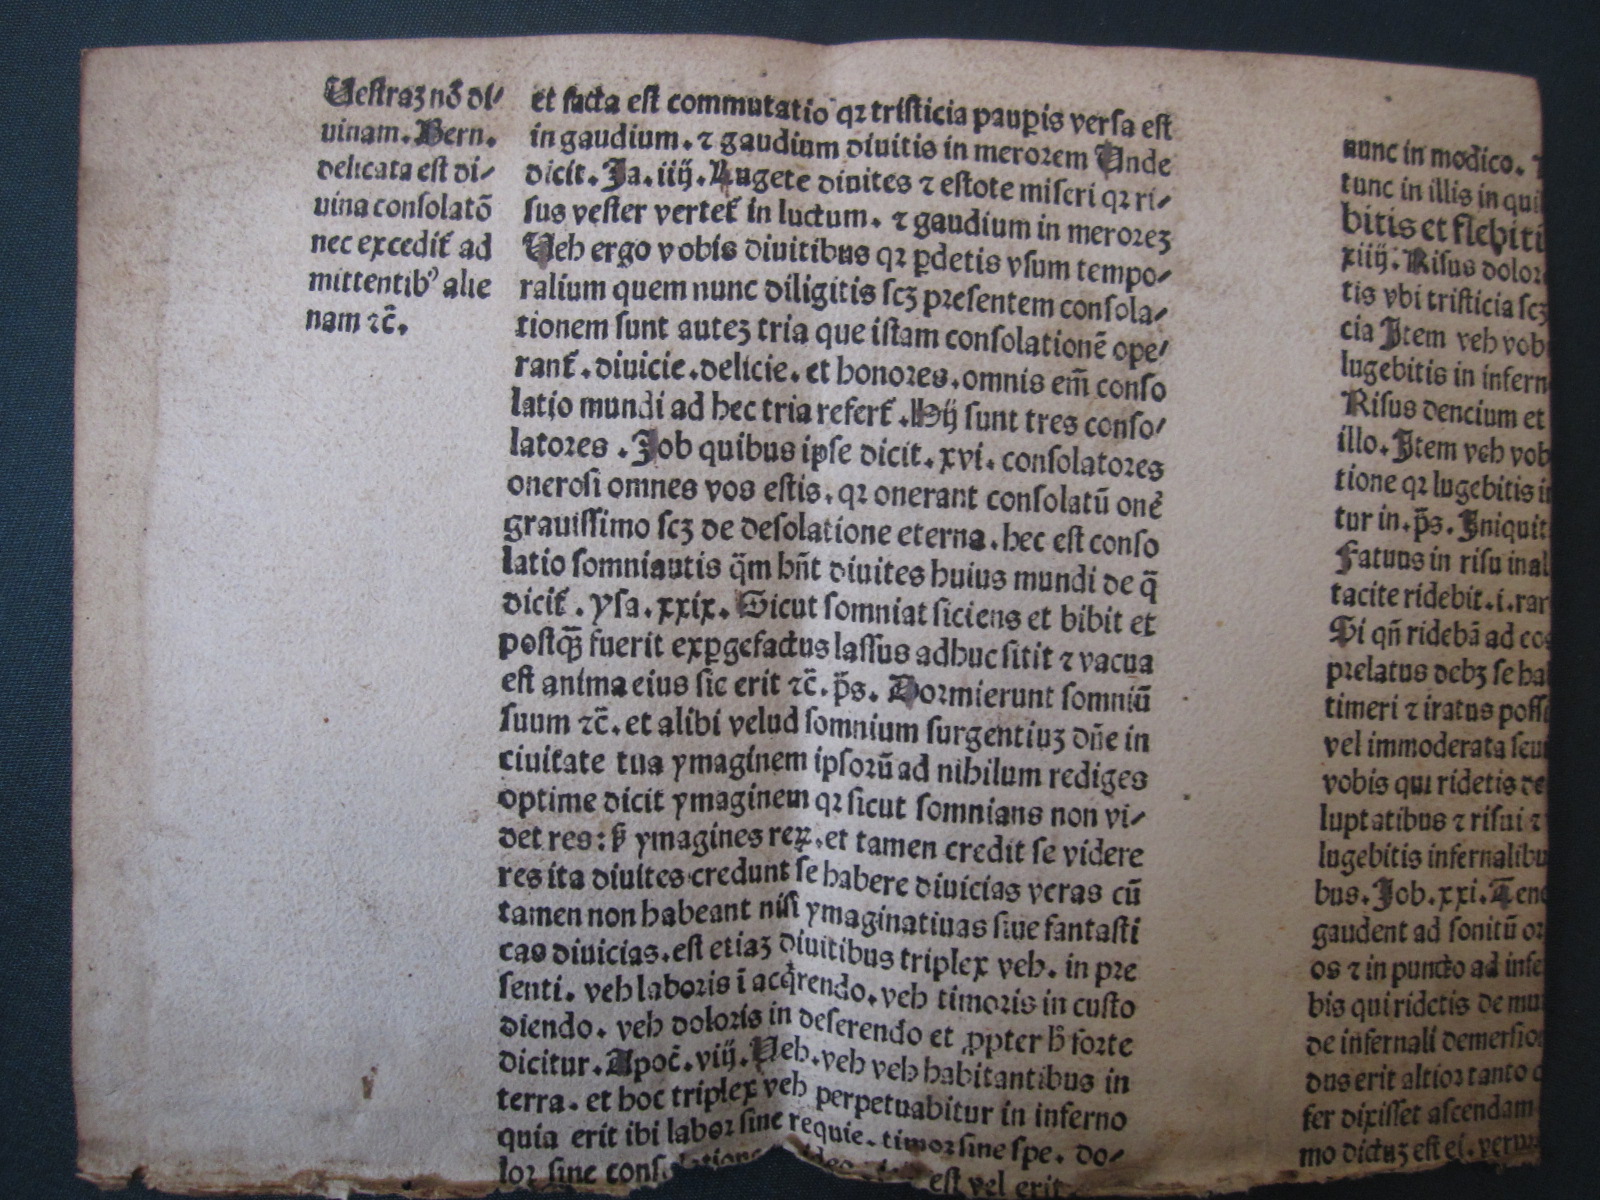 Uestraꝫ nō di⸗
uinam. Bern.
delicata est di⸗
uina consolatō
nec excedit᷑ ad
mittentibꝰ alie
nam ⁊c̄.
et facta est commutatio qꝛ tristicia paup̲is versa est
in gaudium. ⁊ gaudium diuitis in merorem Unde
dicit. Ja. iiij. Lugete diuites ⁊ estote miseri qꝛ ri⸗
sus vester vertet᷑ in luctum. ⁊ gaudium in meroreꝫ
Ueh ergo vobis diuitibus qꝛ ꝑdetis vsum tempo⸗
ralium quem nunc diligitis scꝫ presentem consola⸗
tionem sunt auteꝫ tria que istam consolationē ope⸗
rant᷑. diuicie. delicie. et honores. omnis em̄ conso
latio mundi ad hec tria refert᷑. Hij sunt tres conso⸗
latores. Job quibus ipse dicit. xvi. consolatores
onerosi omnes vos estis. qꝛ onerant consolatū one᷑
grauissimo scꝫ de desolatione eterna. hec est conso
latio somniantis q̄m hn̄t diuites huius mundi de q̄
dicit᷑. ysa. xxix. Sicut somniat siciens et bibit et
postqꝫ̄ fuerit exꝑgefactus lassus adhuc sitit ⁊ vacua
est anima eius sic erit ⁊c̄. p̄s. Dormierunt somniū
suum ⁊c̄. et alibi velud somnium surgentiuꝫ dn̄e in
ciuitate tua ymaginem ipsorū ad nihilum rediges
optime dicit ymaginem qꝛ sicut somnians non vi⸗
det res: ꝫ ymagines reꝝ. et tamen credit se videre
res ita diuites credunt se habere diuicias veras cū
tamen non habeant nisi ymaginatiuas siue fantasti
cas diuicias. est etiaꝫ diuitibus triplex veh. in pre
senti. veh laboris ī acq̇rendo. veh timoris in custo
diendo. veh doloris in deserendo et ꝓpter h̄ forte
dicitur. Apoc̄. viij. Ueh. veh veh habitantibus in
terra. et hoc triplex veh perpetuabitur in inferno
quia erit ibi labor sine requie. timor sine spe. do⸗
lor sine est vel erit
nunc in modico.
tunc in illis in qui
bitis et flebiti
xiiij. Risus dolor
tis vbi tristicia scꝫ
cia Item veh vob
lugebitis in infern
Risus dencium et
illo. Item veh vob
tione qꝛ lugebitis i
tur in. p̄s. Iniquit
Fatuus in risu inal
tacite ridebit. i. rar
Si qn̄ ridebā ad eos
prelatus debꝫ se ha
timeri ⁊ iratus poss
vel immoderata seu
vobis qui ridetis de
luptatibus ⁊ risui ⁊
lugebitis infernalibu
bus. Job. xxi. Tene
gaudent ad sonitū or
os ⁊ in puncto ad infe
bis qui ridetis de mu
de infernali demersio
dus erit altior tanto
fer dixisset ascendam
mo dictuꝫ est ei.